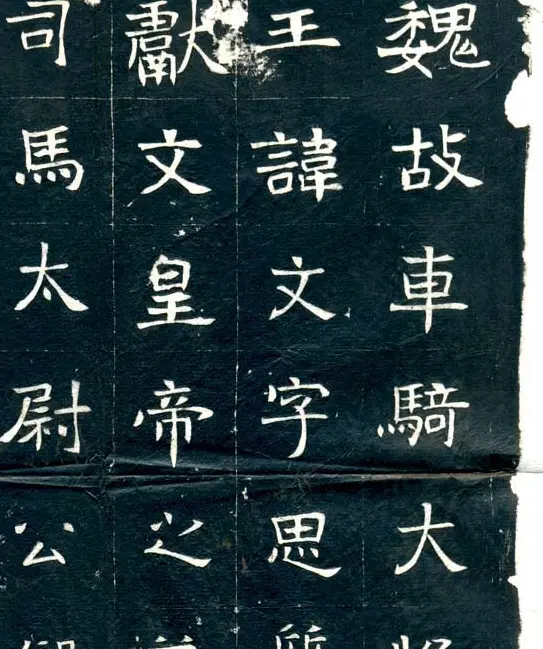 魏故車騎大將
王諱文字思質
獻文皇帝之
司馬太尉公